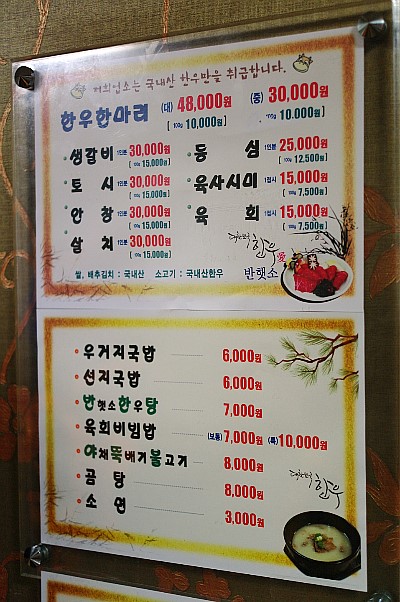 저희업소는 국내산 한우만을 취급합니다.
한우한마리 (대) 48,000원 (중) 30,000원
[ 100g 10,000원 ] 10,000원 ]
생갈비 1인분 30,000원 등 심 1인분 25,000원
[ 100g 15,000원 ] [ 100g 12,500원 ]
토 시 1인분 30,000원 육사시미 1접시 15,000원
[ 100g 15,000원 ] [ 100g 7,500원 ]
안 창 1인분 30,000원 육 회 1접시 15,000원
[ 100g 15,000원 ] [ 100g 7,500원 ]
살 치 1인분 30,000원
[ 100g 15,000원 ]
한우
쌀, 배추김치 : 국내산 소고기 : 국내산한우 반햇소
우거지국밥 6,000원
선지국밥 6,000원
반햇소한우탕 7,000원
육회비빔밥 (보통) 7,000원 (특) 10,000원
야채뚝배기불고기 8,000원
곰 탕 8,000원
소 면 3,000원
한우